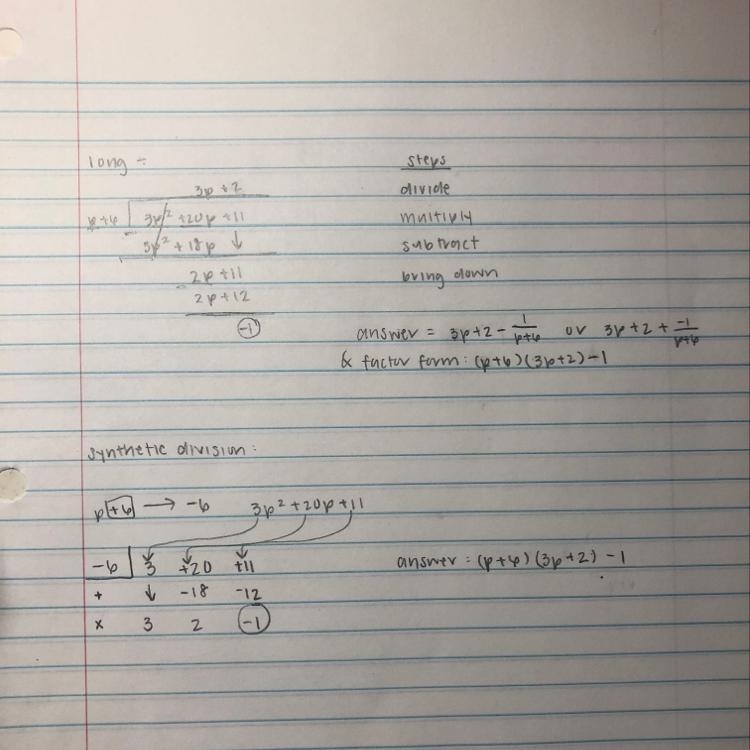 long ÷ steps
3p + 2 divide
p+6 3p² +20p +11 multiply
3p² + 18p ↓ subtract
- 2p +11 bring down
2p +12
-1
answer = 3p+2 - 1/p+6 or 3p+2 + -1/p+6
& factor form: (p+6)(3p+2)-1
synthetic division:
p +6 → -6 3p² +20p +11
-6 3 +20 +11 answer: (p+6)(3p+2) -1
+ ↓ -18 -12
x 3 2 -1